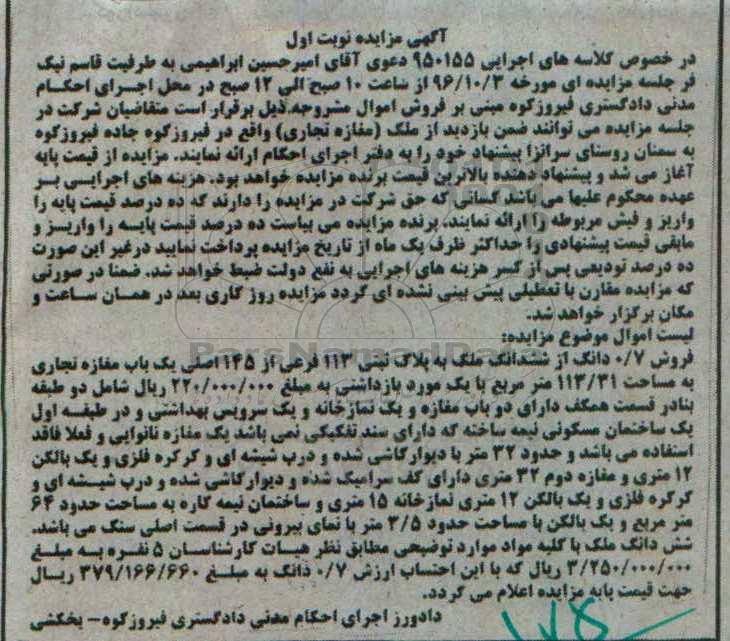 آگهی مزایده نوبت اول
در خصوص کلاسه های اجرایی ۹۵۰۱۵۵ دعوی آقای امیرحسین ابراهیمی به طرفیت قاسم نیک
فر جلسه مزایده ای مورخه ۹۶/۱۰/۳ از ساعت ۱۰ صبح الی ۱۲ صبح در محل اجرای احکام
مدنی دادگستری فیروزکوه مبنی بر فروش اموال مشروحه ذیل برقرار است متقاضیان شرکت در
جلسه مزایده می توانند ضمن بازدید از ملک (مغازه تجاری) واقع در فیروزکوه جاده فیروزکوه
به سمنان روستای سرانزا پیشنهاد خود را به دفتر اجرای احکام ارائه نمایند. مزایده از قیمت پایه
آغاز می شد و پیشنهاد دهنده بالاترین قیمت برنده مزایده خواهد بود. هزینه های اجرایی بر
عهده محکوم علیها می باشد کسانی که حق شرکت در مزایده را دارند که ده درصد قیمت پایه را
واریز و فیش مربوطه را ارائه نمایند. برنده مزایده می بیاست ده درصد قیمت پایه را واریز و
مابقی قیمت پیشنهادی را حداکثر ظرف یک ماه از تاریخ مزایده پرداخت نمایید درغیر این صورت
ده درصد تودیعی پس از کسر هزینه های اجرایی به نفع دولت ضبط خواهد شد. ضمنا در صورتی
که مزایده مقارن با تعطیلی پیش بینی نشده ای گردد مزایده روز کاری بعد در همان ساعت و
مکان برگزار خواهد شد.
لیست اموال موضوع مزایده:
فروش ۰/۷ دانگ از ششدانگ ملک به پلاک ثبتی ۱۱۳ فرعی از ۱۴۵ اصلی یک باب مغازه تجاری
به مساحت ۱۱۳/۳۱ متر مربع با یک مورد بازداشتی به مبلغ ۲۲۰/۰۰۰/۰۰۰ ریال شامل دو طبقه
بنادر قسمت همکف دارای دو باب مغازه و یک نمازخانه و یک سرویس بهداشتی و در طبقه اول
یک ساختمان مسکونی نیمه ساخته که دارای سند تفکیکی نمی باشد یک مغازه نانوایی و فعلا فاقد
استفاده می باشد و حدود ۳۲ متر با دیوارکاشی شده و درب شیشه ای و کرکره فلزی و یک بالکن
۱۲ متری و مغازه دوم ۳۲ متری دارای کف سرامیک شده و دیوارکاشی شده و درب شیشه ای و
کرکره فلزی و یک بالکن ۱۲ متری نمازخانه ۱۵ متری و ساختمان نیمه کاره به مساحت حدود ۶۴
متر مربع و یک بالکن با مساحت حدود ۳/۵ متر با نمای بیرونی در قسمت اصلی سنگ می باشد.
شش دانگ ملک با کلیه مواد موارد توضیحی مطابق نظر هیات کارشناسان ۵ نفره به مبلغ
۳/۲۵۰/۰۰۰/۰۰۰ ریال که با این احتساب ارزش ۰/۷ دانگ به مبلغ ۳۷۹/۱۶۶/۶۶۰ ریال
جهت قیمت پایه مزایده اعلام می گردد.
دادورز اجرای احکام مدنی دادگستری فیروزکوه – یخکشی
ParsNamadData